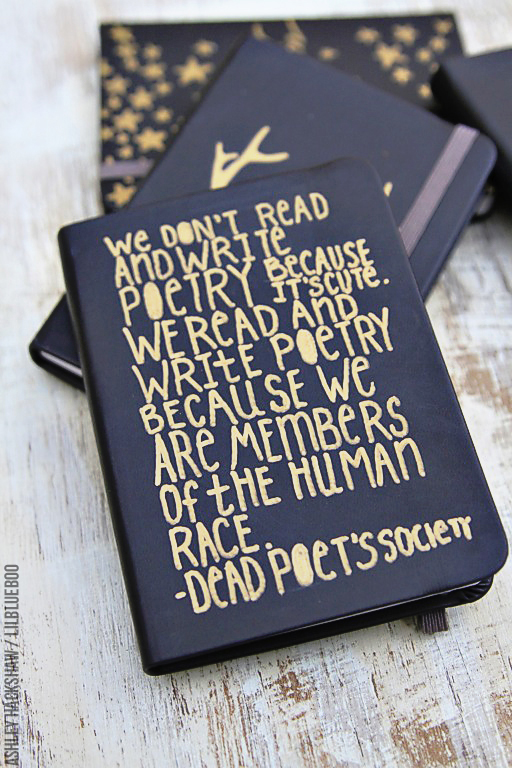 We DON'T READ
AND WRITE
POETRY BECAUSE
IT'S CUTE.
WE READ AND
WRITE POETRY
BECAUSE WE
ARE MEMBERS
OF tHE HUMAN
RACE.
-DEAD POET'S SOCIETY
ASHLEY HACKSHAW / LILBLUEBOO